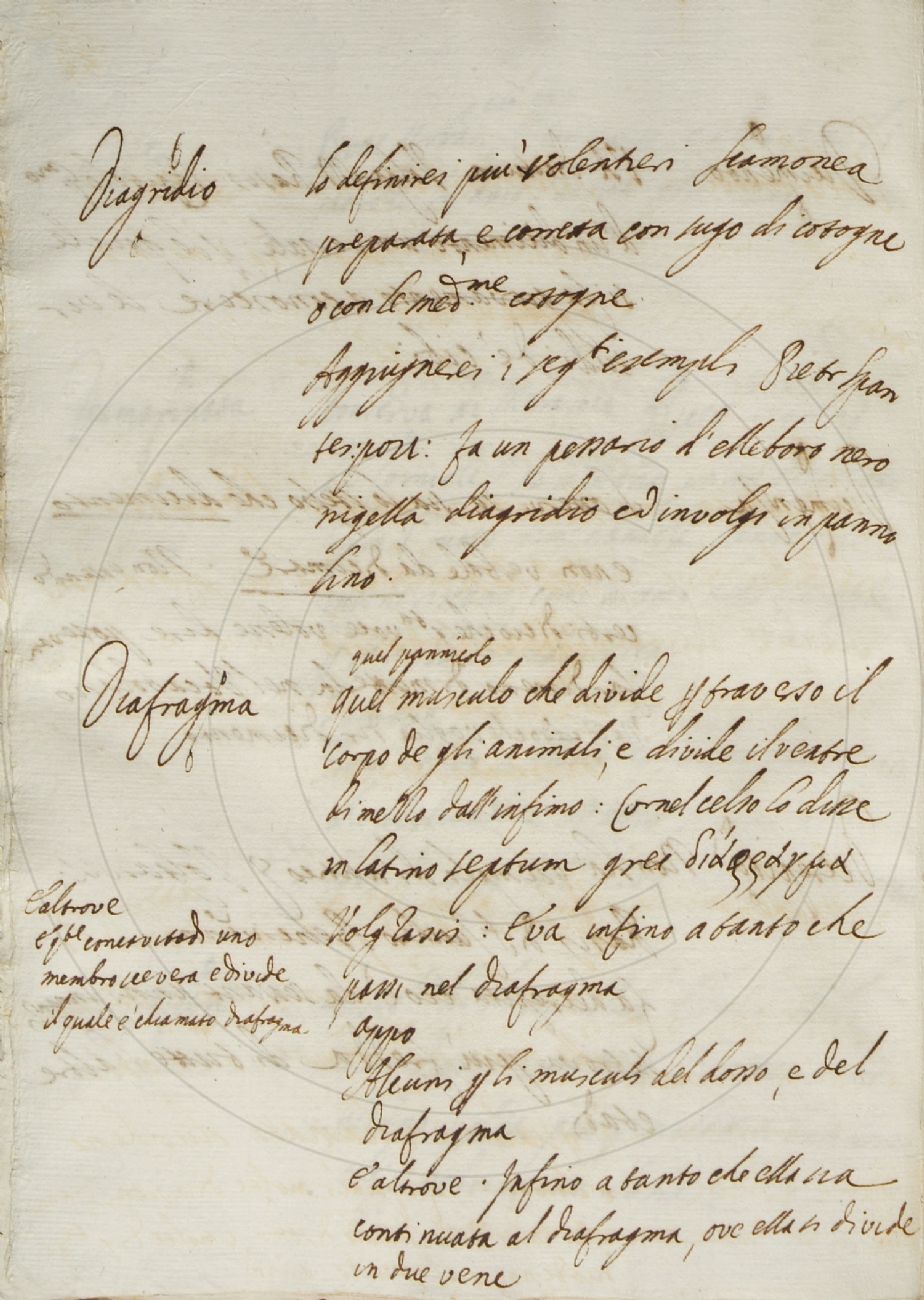 Diagridio
Io definirei più volentieri scamonea
preparata, e corretta con sugo di cotogne
o con le med.me cotogne
Aggiugnerei i seg.ti esempli Pietr Span
tes: pou: fa un pessario d'elleboro nero
nigella diagridio ed involgi in panno
lino.
Diafragma
quel pannicolo
quel musculo che divide p traverso il
corpo de gli animali, e divide il ventre
di mezzo dall'infimo: Cornel celso lo disse
in latino septum grec διάφράγμα
Volg Rasis: E va infino a tanto che
passi nel diafragma
E altrove
E q.te concavità di uno
membro severa e divide
il quale è chiamato diafragma
appo
Alcuni p li musculi del dosso, e del
diafragma
E altrove. Infino a tanto che ella sia
continuata al diafragma, ove ella si divide
in due vene